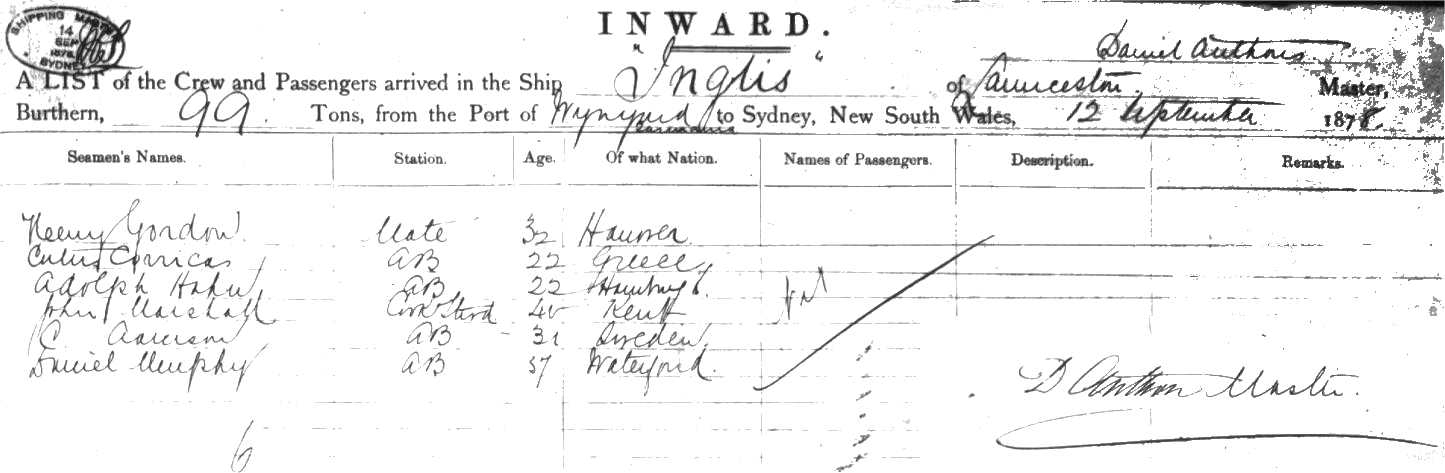 SHIPPING MASTER
14
SEP
1878
SYDNEY
INWARD.
Daniel
A LIST of the Crew and Passengers arrived in the Ship "Inglis" of Launceston, Master,
Burthern, 99. Tons, from the Port of Wynyard to Sydney, New South Wales, 12 September 1878.
Tasmania
Seamen's Names. Station. Age. Of what Nation. Names of Passengers. Description. Remarks.
Henry Gordon Mate 32 Hanover
AB 22 Greece
Adolph Hahn AB 22 Hamburg
John Marshall Cook Stwd Kent
C AB 31 Sweden
Daniel Murphy AB 37 Waterford
Nil
D Master.
6